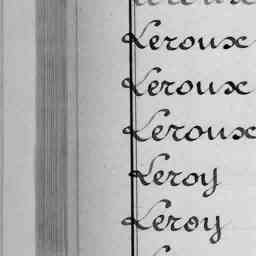 Leroux
Leroux
Leroux
Leroux
Leroy
Leroy